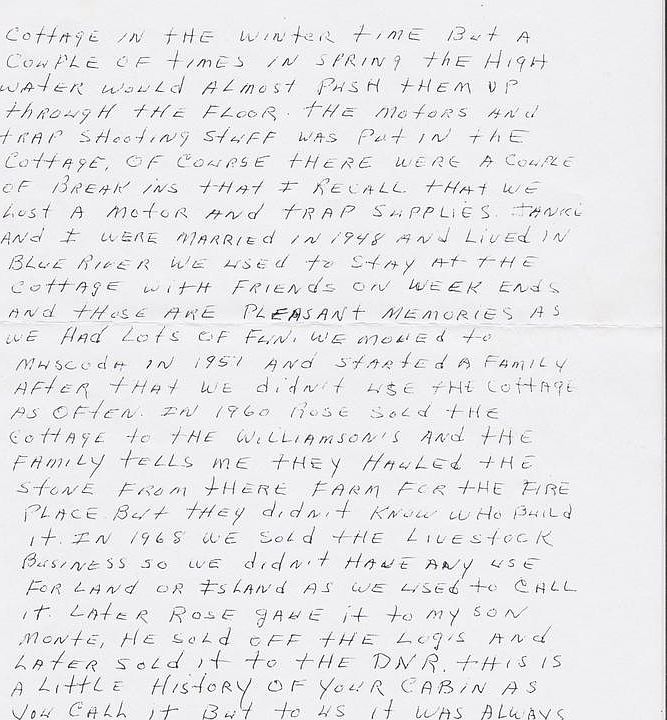 COTTAGE IN THE WINTER TIME BUT A
COUPLE OF TIMES IN SPRING THE HIGH
WATER WOULD ALMOST PUSH THEM UP
THROUGH THE FLOOR. THE MOTORS AND
TRAP SHOOTING STUFF WAS PUT IN THE
COTTAGE, OF COURSE THERE WERE A COUPLE
OF BREAK INS THAT I RECALL THAT WE
LOST A MOTOR AND TRAP SUPPLIES.
AND I WERE MARRIED IN 1948 AND LIVED IN
BLUE RIVER WE USED TO STAY AT THE
COTTAGE WITH FRIENDS ON WEEK ENDS
AND THOSE ARE PLEASANT MEMORIES AS
WE HAD LOTS OF FUN. WE MOVED TO
MUSCODA IN 1951 AND STARTED A FAMILY
AFTER THAT WE DIDN'T USE THE COTTAGE
AS OFTEN. IN 1960 ROSE SOLD THE
COTTAGE TO THE WILLIAMSON'S AND THE
FAMILY TELLS ME THEY HAULED THE
STONE FROM THERE FARM FOR THE FIRE
PLACE. BUT THEY DIDN'T KNOW WHO BUILD
IT. IN 1968 WE SOLD THE LIVESTOCK
BUSINESS SO WE DIDN'T HAVE ANY USE
FOR LAND OR ISLAND AS WE USED TO CALL
IT. LATER ROSE GAVE IT TO MY SON
MONTE, HE SOLD OFF THE LOGS AND
LATER SOLD IT TO THE DNR. THIS IS
A LITTLE HISTORY OF YOUR CABIN AS
YOU CALL IT BUT TO US IT WAS ALWAYS